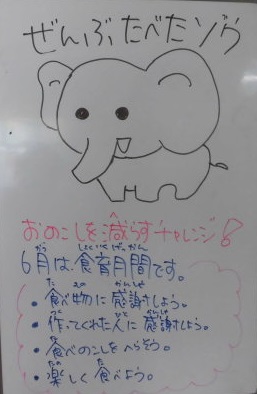 ぜんぶたべたゾウ
おのこしを減らすチャレンジ!
6月は食育月間です。
・食べ物に感謝しよう。
・作ってくれた人に感謝しよう。
・食べのこしをへらそう。
・楽しく食べよう。